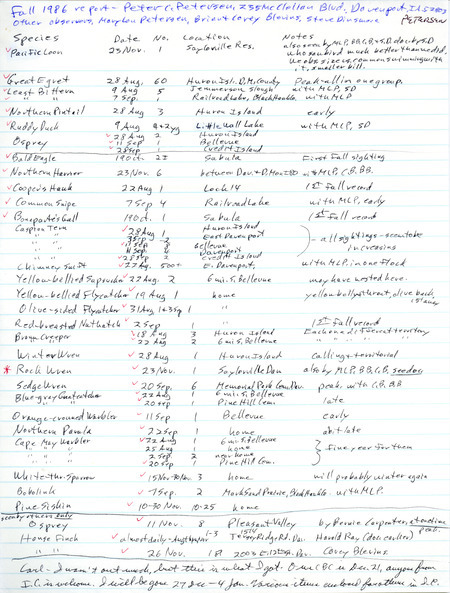 Fall 1986 report - Peter C. Petersen, 235 McClellan Blvd. Davenport, IA 52803
Other observers, Mary Lou Petersen, Brian & Corey Blevins, Steve Dinsmore PETERSEN
Species Date No. Location Notes
Pacific Loon 23 Nov. 1 Saylorville Res. also seen by MLP, BB, CB & SD. do by SD
who saw bird much better than we did.
We obs. size comm. swimming with
it, smaller bill.
Great Egret 28 Aug. 60 Huron Isl. D. M. County Peak - all in one group.
Least Bittern 9 Aug 5 Jemmerson slough with MLP, SD
" " 7 Sep. 1 Railroad Lake, Black Hawk Co. with MLP
Northern Pintail 28 Aug 3 Huron Island early
Ruddy Duck 9 Aug 9+2yg Little Wall Lake with MLP, SD
Osprey 28 Aug 2 Huron Island
11 Sep 1 Bellevue
28 Sep Credit Island
Bald Eagle 19 Oct. Sabula First fall sighting
Northern Harrier 23 Nov. 6 between Dav. & D. Moines with MLP, C.B. BB.
Cooper's Hawk 22 Aug 1 Lock 14 1st Fall record
Common Snipe 7 Sep 4 Railroad Lake with MLP, early
Bonaparte's Gull 19 Oct. 1 Sabula 1st fall record
Caspian Tern 28 Aug 1 Huron Island
" " 3 Sep 2 East Davenport
" " 11 Sep 8 Bellevue - all sightings - seem to be
" " Sep Davenport increasing
" " 28 Sep 2 Credit Island
Chimney Swift 27 Aug. 500+ E. Davenport, with MLP, in one flock
Yellow-bellied Sapsucker 22 Aug. 2 6 mi. S. Bellevue may have nested here.
Yellow-bellied Flycatcher 19 Aug 1 home yellow belly & throat, olive back
Olive-sided Flycatcher 31 Aug 1 + 3 Sep 1 "
Red-breasted Nuthatch 2 Sep 1 " 1st fall record
Brown Creeper 18 Aug 3 Huron Island Each on a different territory
22 Aug 2 6 mi. S. Bellevue
Winter Wren 28 Aug 1 Huron Island Calling - territorial
Rock Wren 23 Nov. 1 Saylorville Dam also by MLP, BB, CB, see doc
Sedge Wren 20 Sep. 6 Memorial Park Cem Dav. peak. with C.B, BB
Blue-gray Gnatcatcher 22 Aug 1 6 mi. S. Bellevue
" " 20 Sep 1 Pine Hill Cem. late
Orange-crowned Warbler 11 Sep 1 Bellevue early
Northern Parula 22 Sep 1 home a bit late
Cape May Warbler 22 Aug 1 6 mi. S. Bellevue
" " 25 Aug 1 home fine year for them
" " 2 Sep. 2 near home
" " 20 Sep 1 Pine Hill Cem.
White-thr. Sparrow 15 Nov - 30 Nov. 3 home will probably winter again
Bobolink 7 Sep. 2 Mark Sand Prairie, Black Hawk Co. with MLP.
Pine Siskin 10-30 Nov. 10-25 home
seen by others only
Osprey 11 Nov. 8 Pleasant Valley by Bernie Carpenter, at one time
peak.
House Finch almost daily - Aug thru Nov 1-3 Ridge Rd. Dav. Harold Ray (doc. earlier)
" " 26 Nov. 1 2003 E. 12th St. Dav. Corey Blevins
Carl - I wasn't out much, but this is what I got. Our CBC is Dec. 21, anyone from
I.C. is welcome. I will be gone 27 Dec - 4 Jan. Various items enclosed for others in I.C.